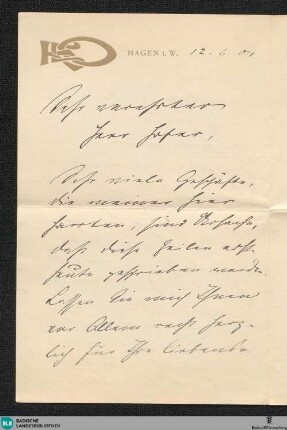 HAGEN i. W. 12. 6. 01
Sehr verehrter
Herr Hofer,
Sehr viele Geschäfte,
die meiner hier
harrten, sind Ursache,
daß diese Zeilen erst
heute geschrieben werden.
Lassen Sie mich Ihnen
vor Allem recht herz-
lich für Ihre liebens-
BLB BADISCHE
LANDESBIBLIOTHEK
Baden-Württemberg